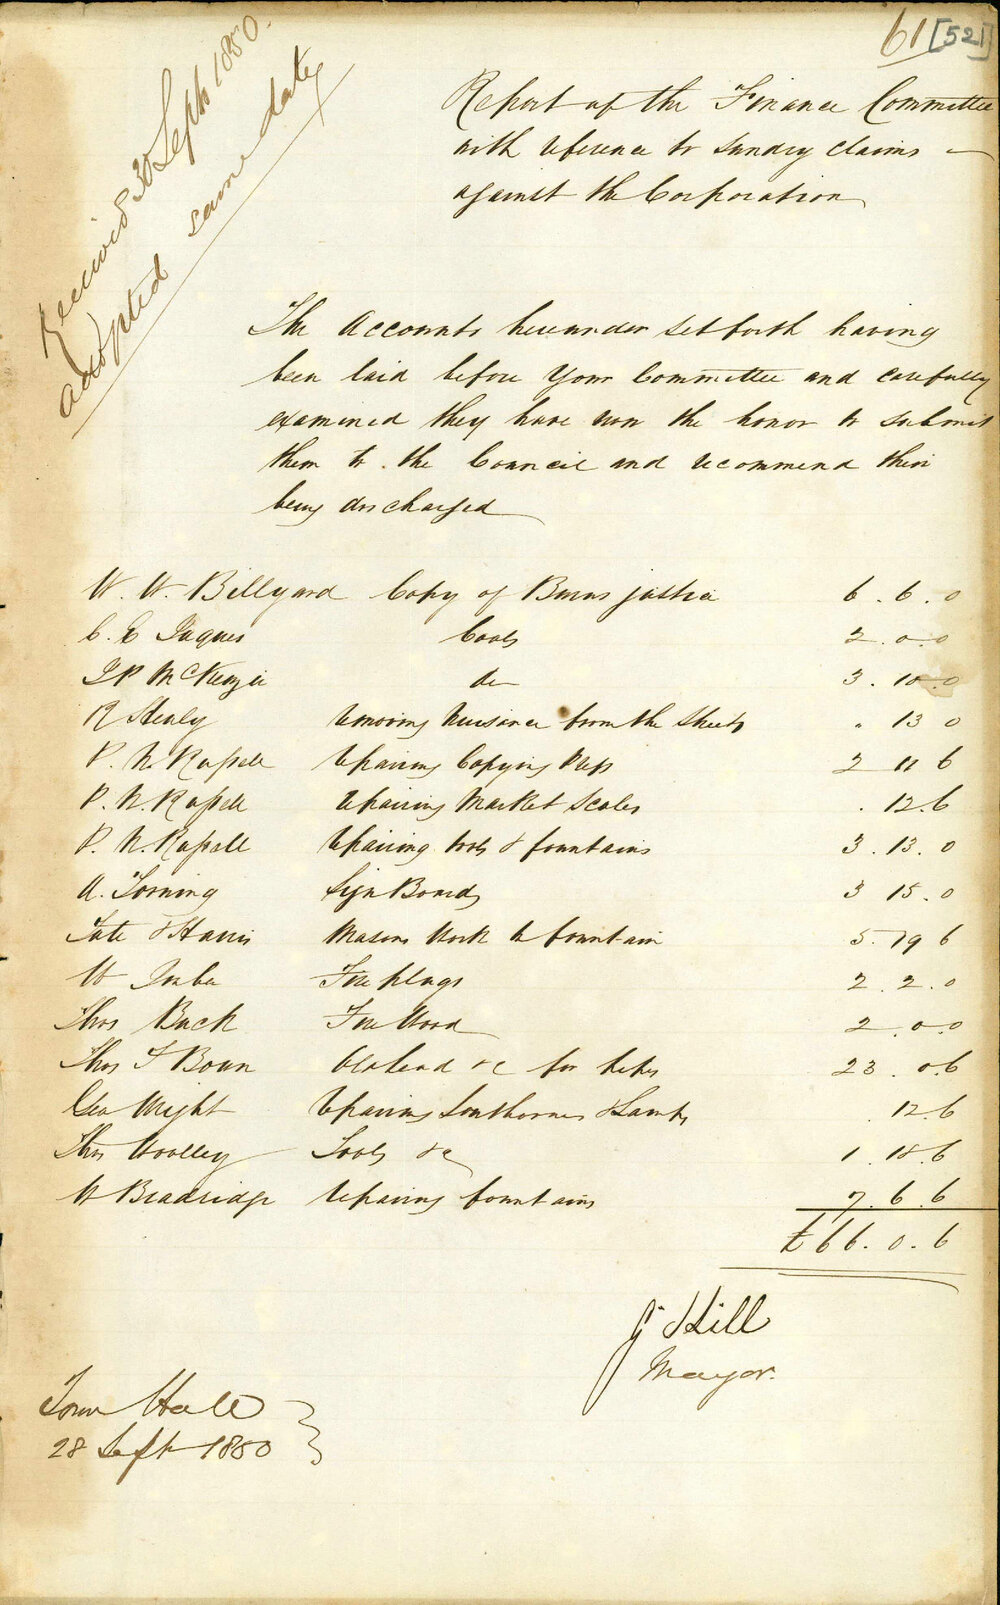 61 [521]
Received 30 Septr 1850.
adopted same date
Report of the Finance Committee
with reference to sundry claims
against the Corporation
The Accounts hereunder set forth having
been laid before Your Committee and carefully
examined they have now the honor to submit
them to the Council and recommend their
being discharged
W. W. Billyard Copy of Burns justice 6 . 6 . 0
C. E Jaques Coals 2 . 0 . 0
McKenzie do 3 . 10 . 0
R Healy removing Nuisance from the Streets . 13 0
P. N. Russell repairing Copying Press 2 11 6
P. N. Russell repairing Market Scales . 12 . 6
P. N. Russell repairing tools & fountains 3 . 13 . 0
A. Torning Sign Boards 3 15 . 0
Tate & Harris Masons Work to fountain 5 . 19 6
W Fire plugs 2 . 2 . 0
Thos Buck Fire Wood 2 . 0 . 0
Thos J Bown &c for pipes 23 . 0 . 6
Geo Wright repairing Lanthornes & Lamps . 12 . 6
Thos Woolley Tools &c 1 . 18 . 6
W Bradridge repairing fountains 7 . 6 . 6
£66 . 0 . 6
J Hill
Mayor.
Town Hall
28 Sept 1850